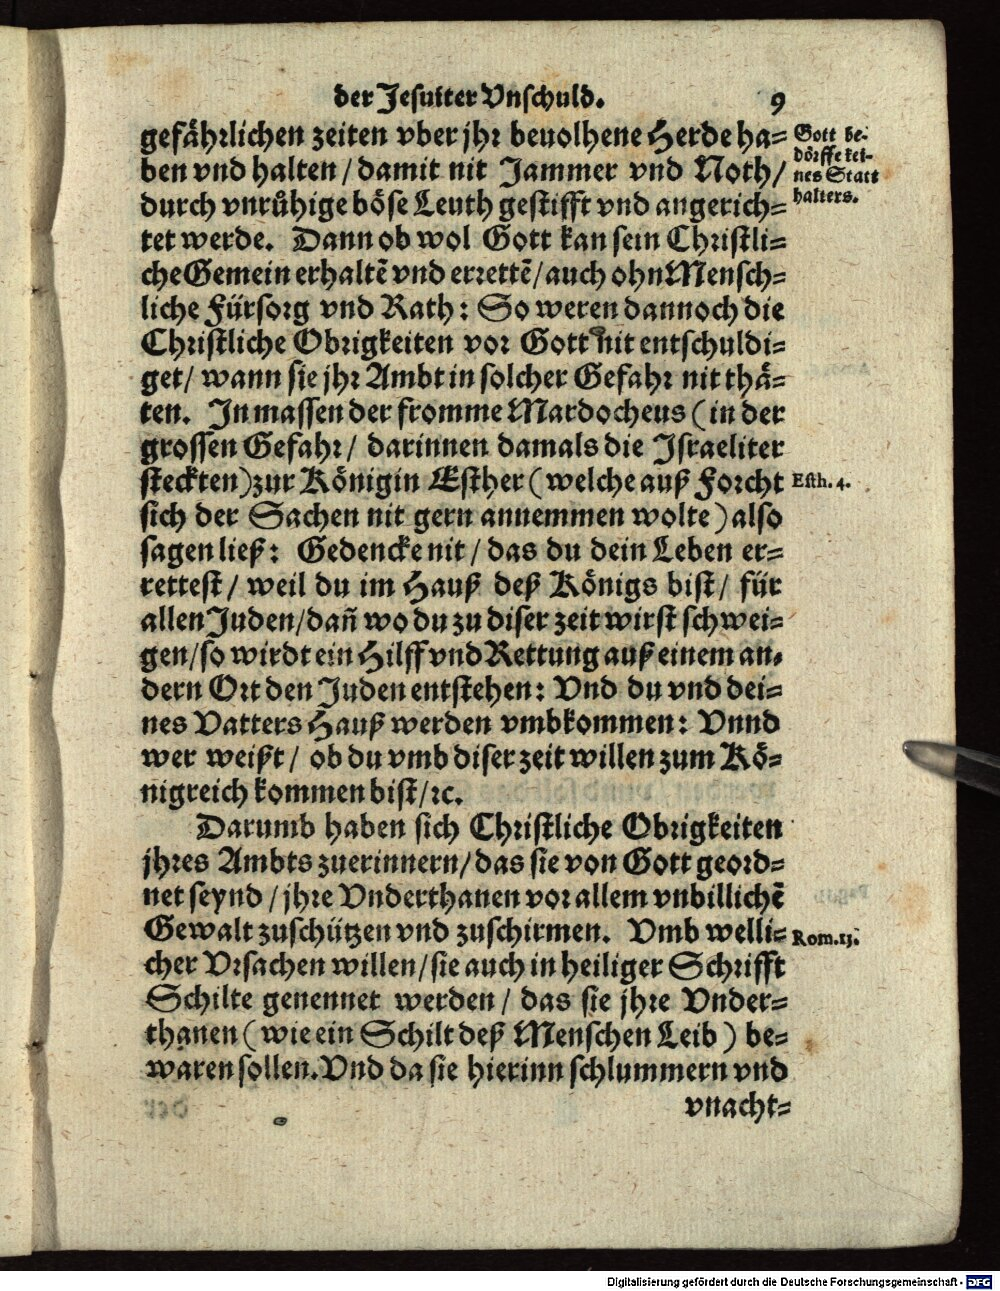 der Jesuiter Vnschuld. 9
gefährlichen zeiten vber jhr beuolhene Herde ha=
ben vnd halten / damit nit Jammer vnd Noth /
durch vnrůhige böse Leuth gestifft vnd angerich=
tet werde. Dann ob wol Gott kan sein Christli=
che Gemein erhaltẽ vnd errettẽ / auch ohn Mensch=
liche Fürsorg vnd Rath: So weren dannoch die
Christliche Obrigkeiten vor Gott nit entschuldi=
get / wann sie jhr Ambt in solcher Gefahr nit thä=
ten. In massen der fromme Mardocheus (in der
grossen Gefahr / darinnen damals die Israeliter
steckten) zur Königin Esther (welche auß Forcht
sich der Sachen nit gern annemmen wolte) also
sagen ließ: Gedencke nit / das du dein Leben er=
rettest / weil du im Hauß deß Königs bist / für
allen Juden / dañ wo du zu diser zeit wirst schwei=
gen / so wirdt ein Hilff vnd Rettung auß einem an=
dern Ort den Juden entstehen: Vnd du vnd dei=
nes Vatters Hauß werden vmbkommen: Vnnd
wer weißt / ob du vmb diser zeit willen zum Kö=
nigreich kommen bist / ꝛc.
Darumb haben sich Christliche Obrigkeiten
jhres Ambts zuerinnern / das sie von Gott geord=
net seynd / jhre Vnderthanen vor allem vnbillichẽ
Gewalt zuschützen vnd zuschirmen. Vmb welli=
cher Vrsachen willen / sie auch in heiliger Schrifft
Schilte genennet werden / das sie jhre Vnder=
thanen (wie ein Schilt deß Menschen Leib) be=
waren sollen. Vnd da sie hierinn schlummern vnd
vnacht=
Gott be-
dörffe kei-
nes Statt
halters.
Esth. 4.
Rom. 13.
Digitalisierung gefördert durch die Deutsche Forschungsgemeinschaft - DFG